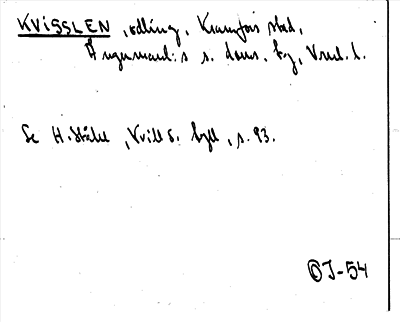 KVISSLEN, odling, Kramfors stad,
Ångermanl:s s. doms. by, Vnrl. l.
Se H. Ståhl, Kvill o. byll, s. 93.
OJ-54